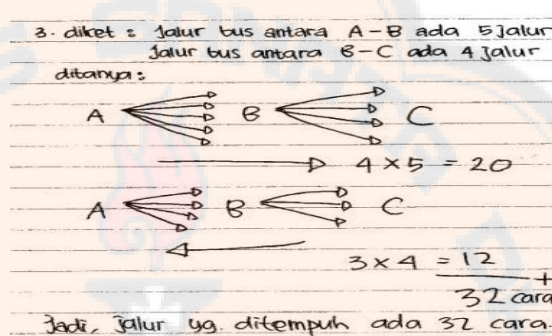 3. diket : Jalur bus antara A-B ada 5 Jalur
Jalur bus antara B-C ada 4 Jalur
ditanya :
A B C
4 x 5 = 20
A B C
3 x 4 = 12
+
32 cara
Jadi, jalur yg. ditempuh ada 32 cara